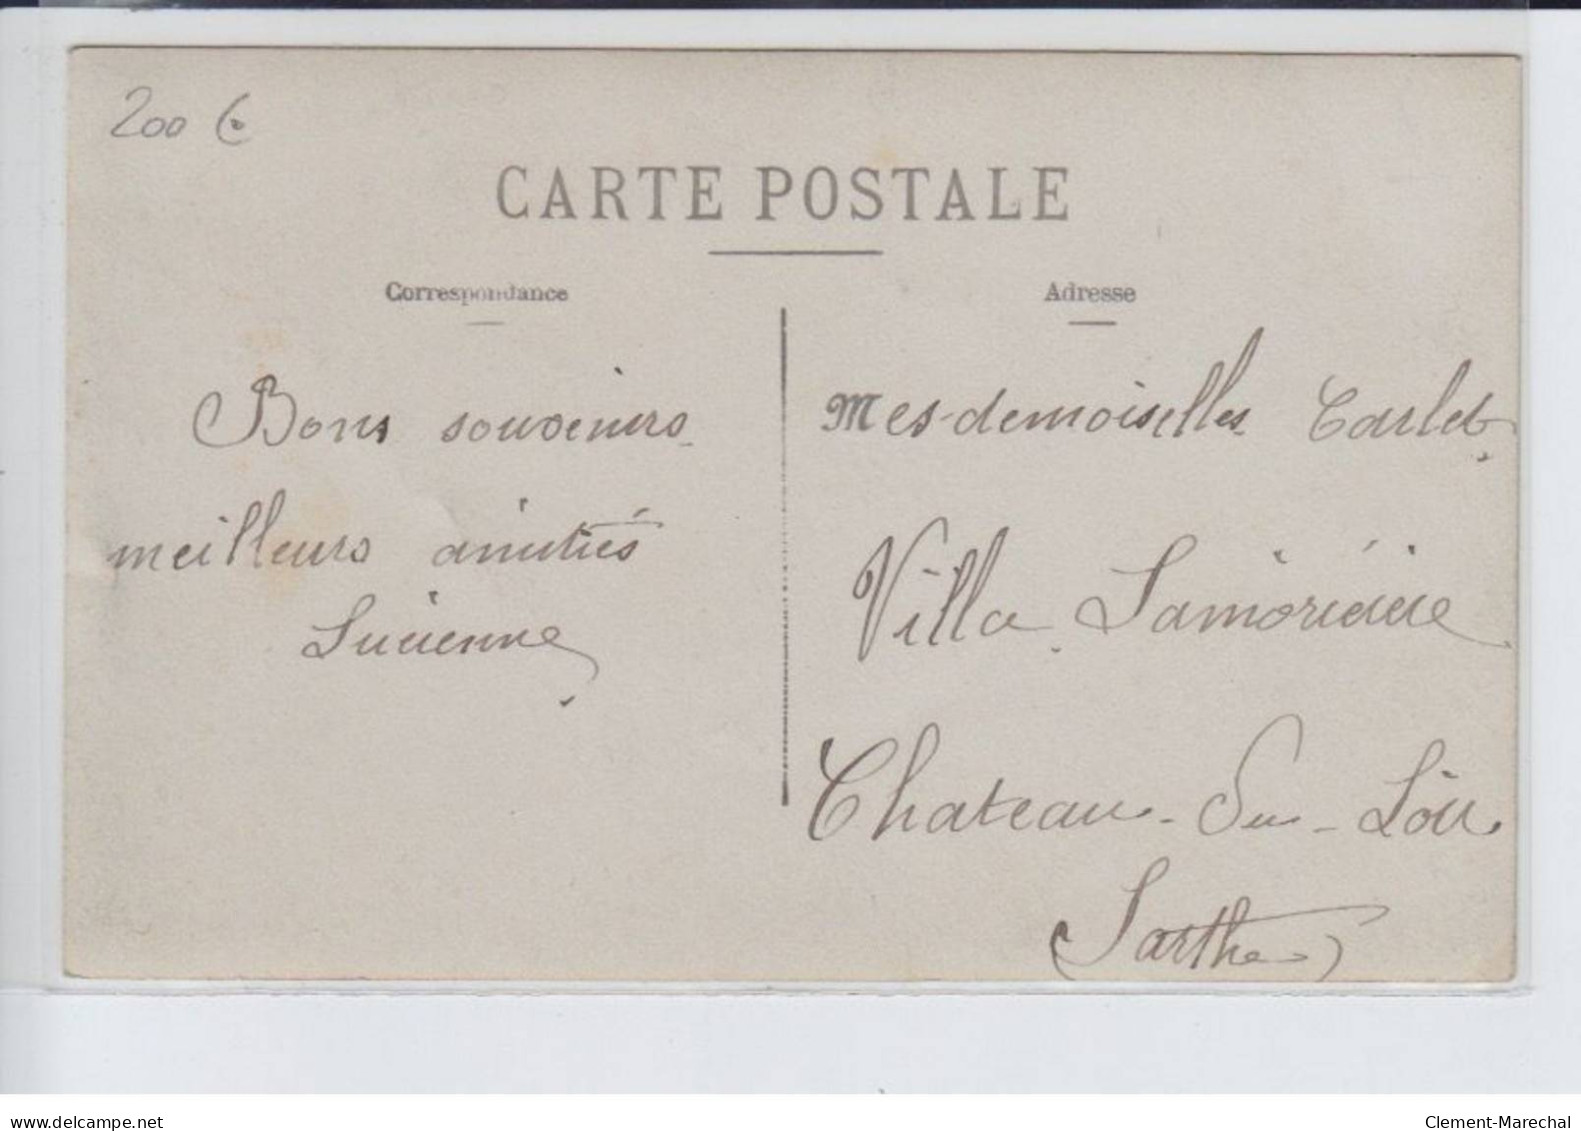 200 €
CARTE POSTALE
Correspondance
Adresse
Bons souvenirs
meilleurs amitiés
Lucienne
Mes-demoiselles Carlet
Villa Lamoricière
Chateau-Su-Loir
(Sarthe)
delcampe.net
Clement-Marechal